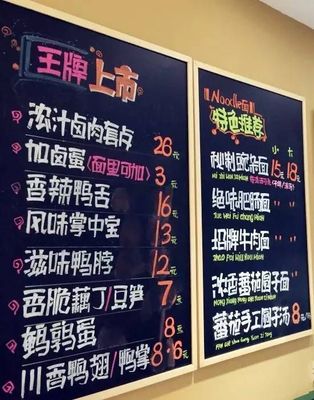 王牌上市
浓汁卤肉套点 28元
加卤蛋(面里可加) 3元
香辣鸭舌 16元
风味掌中宝 13元
滋味鸭脖 12元
香脆藕丁/豆笋 7元
鹌鹑蛋 8元
川香鸭翅/鸭掌 8·6元
Noodle面
特色推荐
小 大
秘制豌杂面 15元 18元
绝味肥肠面 〃 〃
招牌牛肉面 〃 〃
浓香番茄圆子面 〃 〃
番茄手工圆子汤 8元